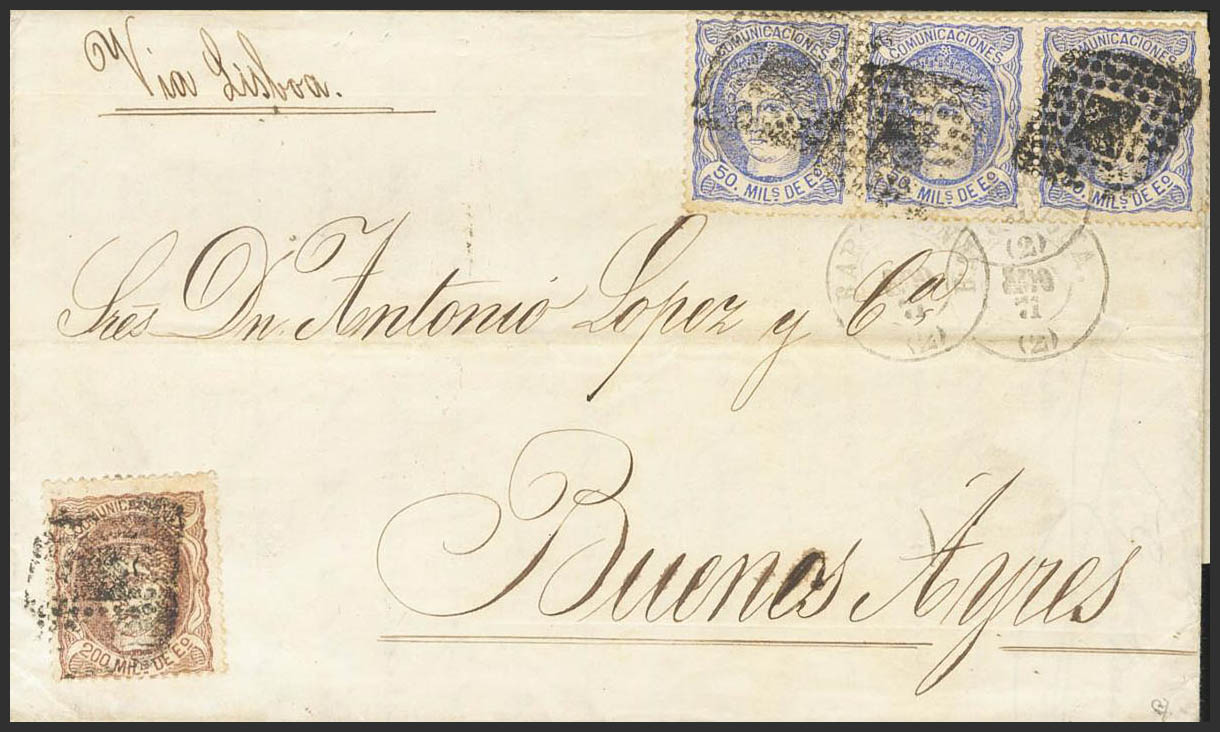 Via Lisboa.
COMUNICACIONES
50. MILS DE Eo
COMUNICACIONES
50. MILS DE Eo
COMUNICACIONES
50. MILS DE Eo
BARCELONA
(2)
AGO
71
(2)
(2)
Sres Dn. Antonio Lopez y Ca
Buenos Ayres
COMUNICACIONES
200 MILS DE Eo